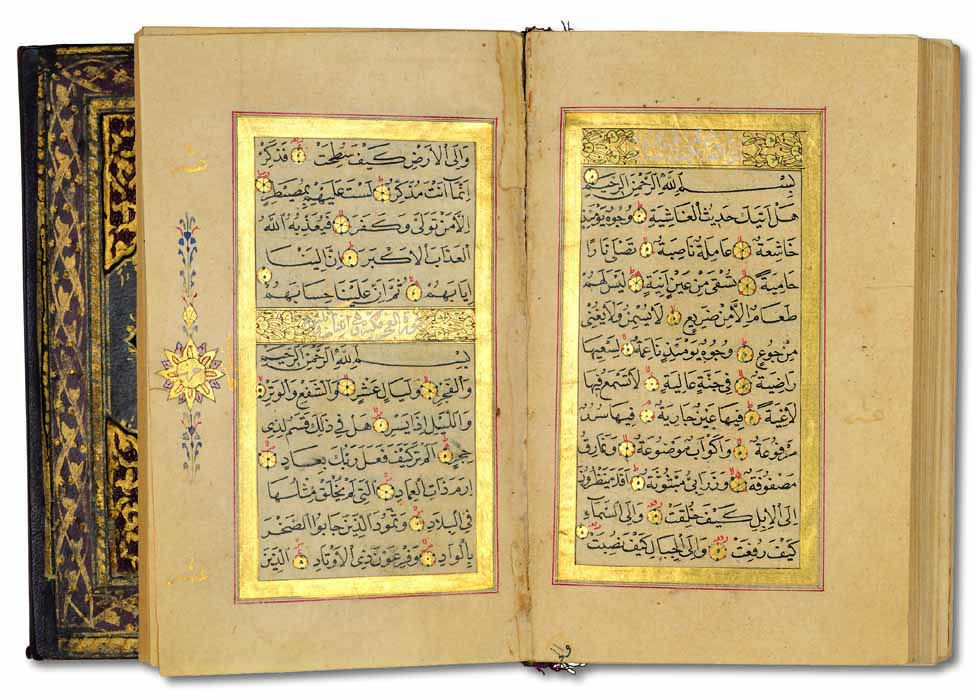 بِسْمِ اللّٰهِ الرَّحْمٰنِ الرَّحِيمِ
هَلْ اَتٰيكَ حَدِيثُ الْغَاشِيَةِ وُجُوهٌ يَوْمَئِذٍ
خَاشِعَةٌ عَامِلَةٌ نَاصِبَةٌ تَصْلٰى نَارًا
حَامِيَةً تُسْقٰى مِنْ عَيْنٍ اٰنِيَةٍ لَيْسَ لَهُمْ
طَعَامٌ اِلَّا مِنْ ضَرِيعٍ لَا يُسْمِنُ وَلَا يُغْنِى
مِنْ جُوعٍ وُجُوهٌ يَوْمَئِذٍ نَاعِمَةٌ لِسَعْيِهَا
رَاضِيَةٌ فِى جَنَّةٍ عَالِيَةٍ لَا تَسْمَعُ فِيهَا
لَاغِيَةً فِيهَا عَيْنٌ جَارِيَةٌ فِيهَا سُرُرٌ
مَرْفُوعَةٌ وَاَكْوَابٌ مَوْضُوعَةٌ وَنَمَارِقُ
مَصْفُوفَةٌ وَزَرَابِىُّ مَبْثُوثَةٌ اَفَلَا يَنْظُرُونَ
اِلَى الْاِبِلِ كَيْفَ خُلِقَتْ وَاِلَى السَّمَاءِ
كَيْفَ رُفِعَتْ وَاِلَى الْجِبَالِ كَيْفَ نُصِبَتْ
والى
وَاِلَى الْاَرْضِ كَيْفَ سُطِحَتْ فَذَكِّرْ
اِنَّمَا اَنْتَ مُذَكِّرٌ لَسْتَ عَلَيْهِمْ بِمُصَيْطِرٍ
اِلَّا مَنْ تَوَلّٰى وَكَفَرَ فَيُعَذِّبُهُ اللّٰهُ
الْعَذَابَ الْاَكْبَرَ اِنَّ اِلَيْنَا
اِيَابَهُمْ ثُمَّ اِنَّ عَلَيْنَا حِسَابَهُمْ
بِسْمِ اللّٰهِ الرَّحْمٰنِ الرَّحِيمِ
وَالْفَجْرِ وَلَيَالٍ عَشْرٍ وَالشَّفْعِ وَالْوَتْرِ
وَاللَّيْلِ اِذَا يَسْرِ هَلْ فِى ذٰلِكَ قَسَمٌ لِذِى
حِجْرٍ اَلَمْ تَرَ كَيْفَ فَعَلَ رَبُّكَ بِعَادٍ
اِرَمَ ذَاتِ الْعِمَادِ الَّتِى لَمْ يُخْلَقْ مِثْلُهَا
فِى الْبِلَادِ وَثَمُودَ الَّذِينَ جَابُوا الصَّخْرَ
بِالْوَادِ وَفِرْعَوْنَ ذِى الْاَوْتَادِ اَلَّذِينَ